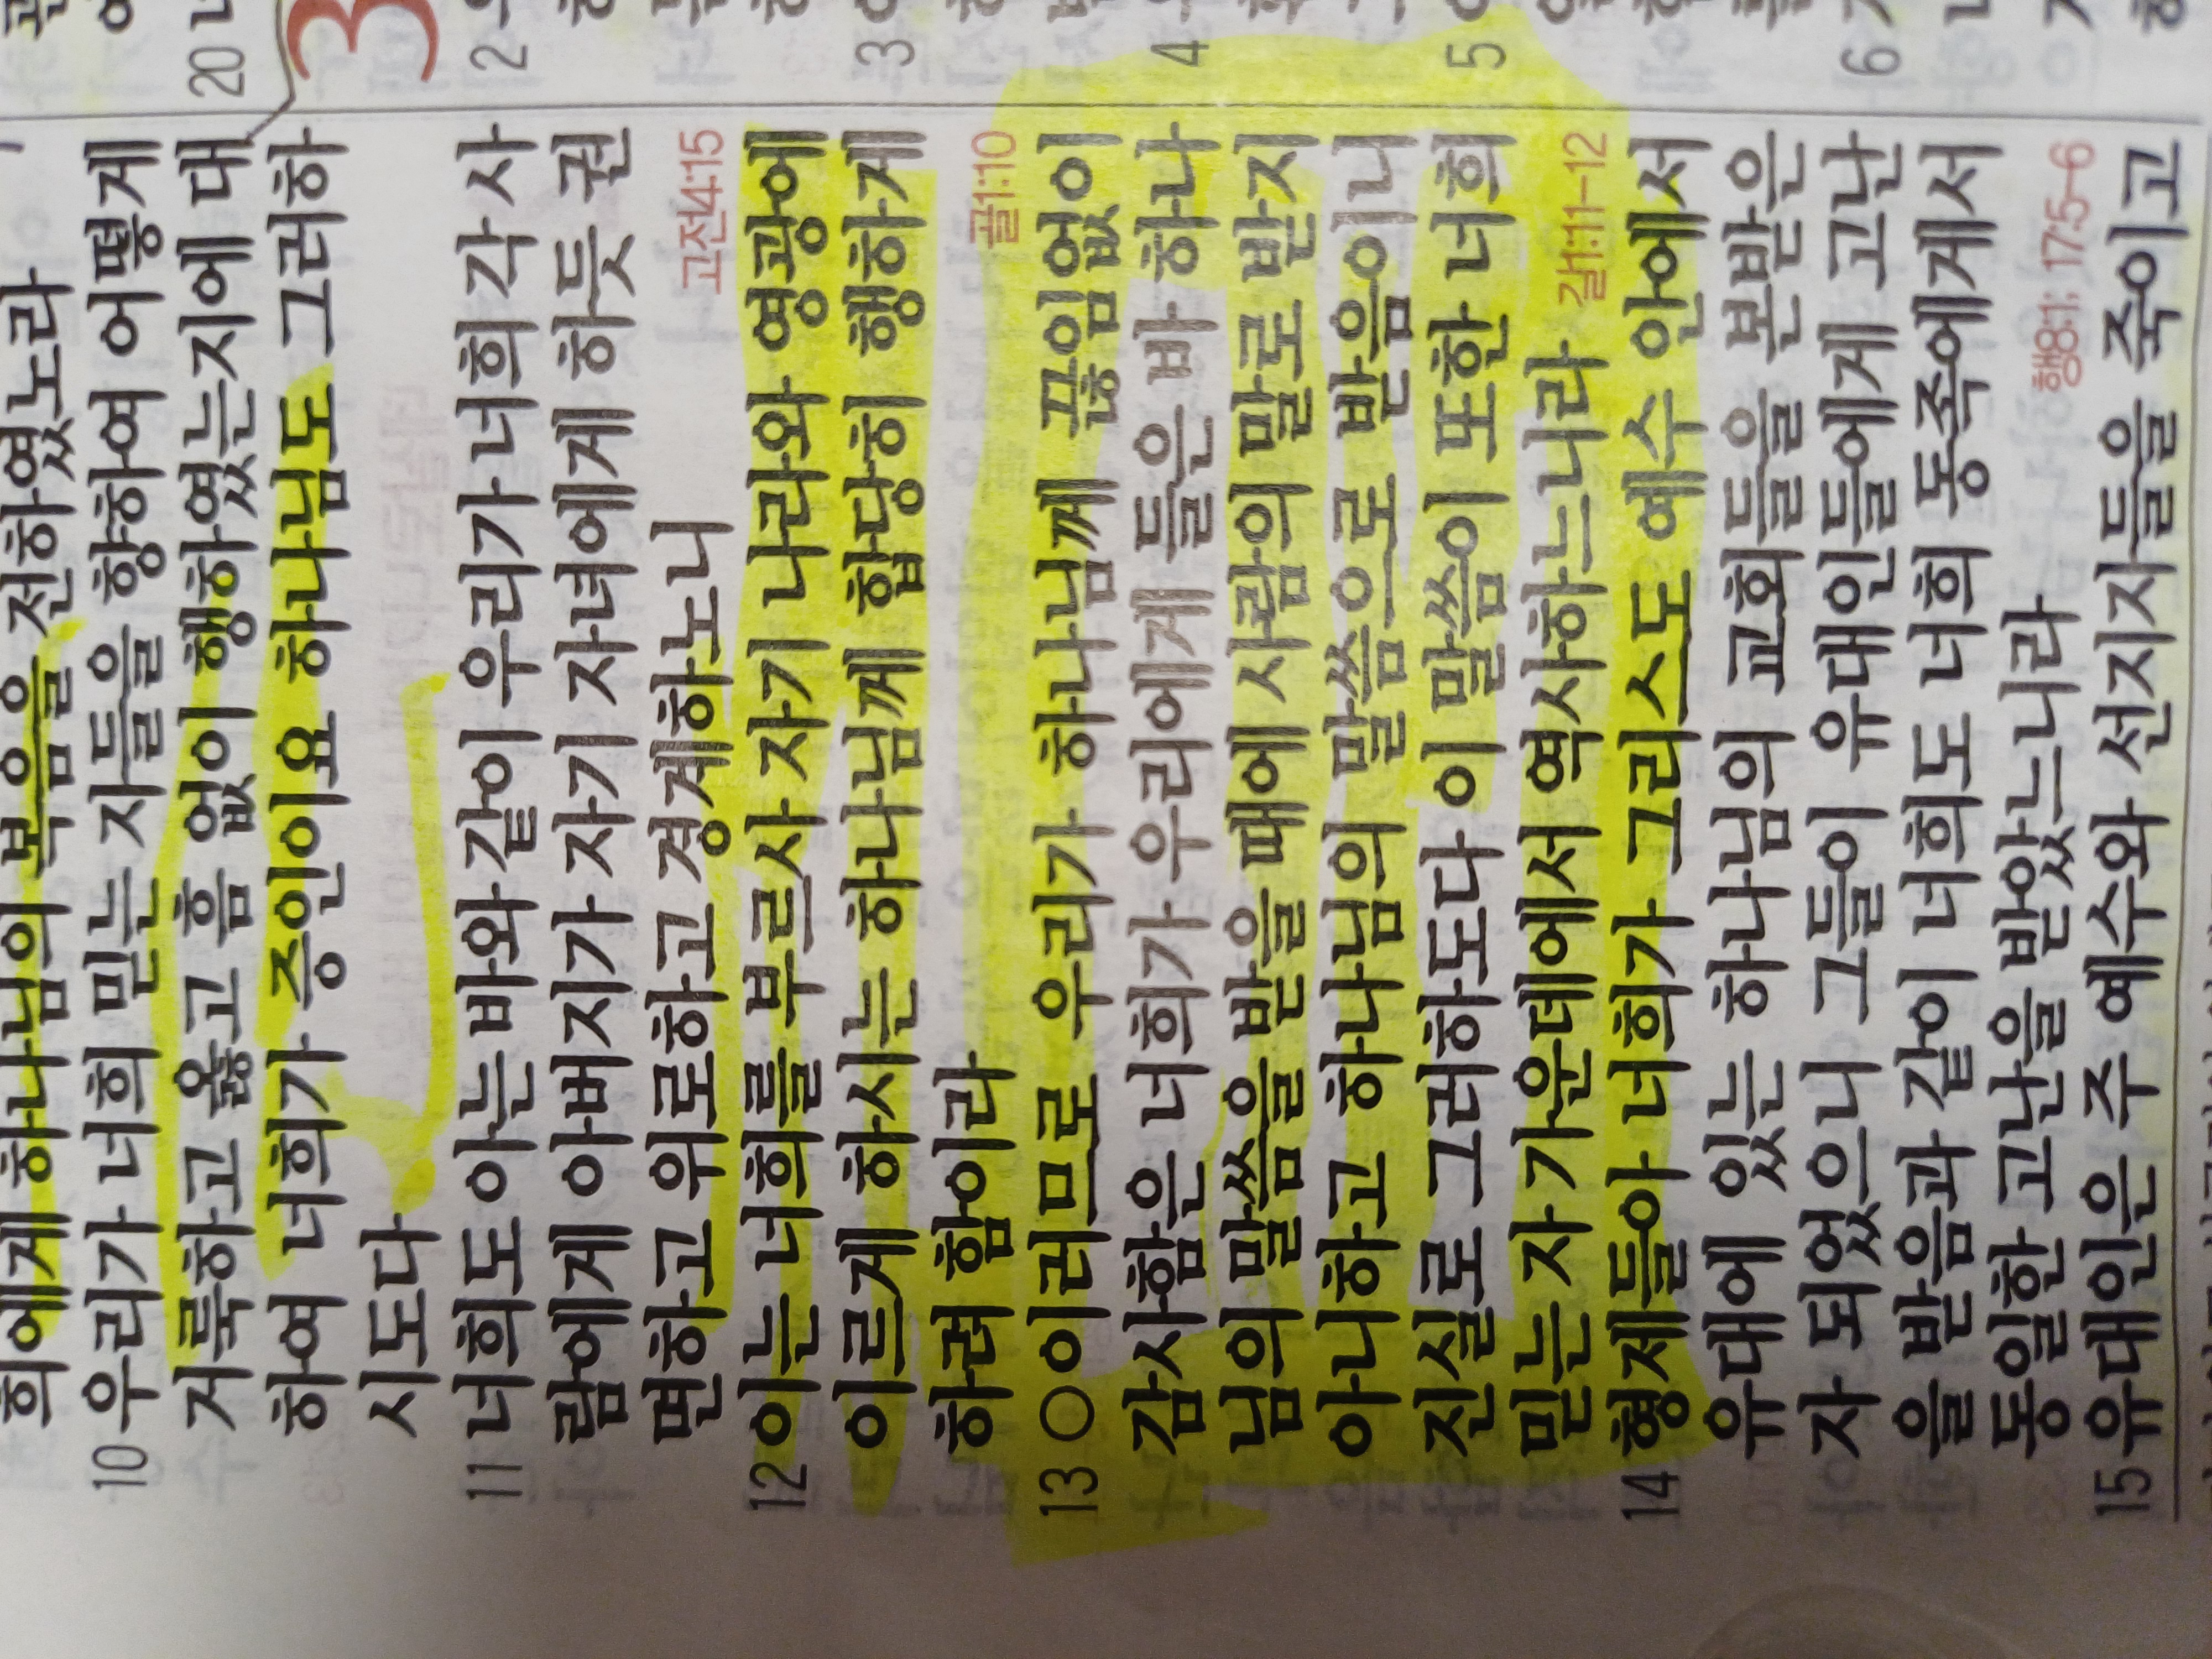 희에게 하나님의 복음을 전하였노라
10 우리가 너희 믿는 자들을 향하여 어떻게
거룩하고 옳고 흠 없이 행하였는지에 대
하여 너희가 증인이요 하나님도 그러하
시도다
11 너희도 아는 바와 같이 우리가 너희 각 사
람에게 아버지가 자기 자녀에게 하듯 권
면하고 위로하고 경계하노니 고전4:15
12 이는 너희를 부르사 자기 나라와 영광에
이르게 하시는 하나님께 합당히 행하게
하려 함이라 골1:10
13 ○이러므로 우리가 하나님께 끊임없이
감사함은 너희가 우리에게 들은 바 하나
님의 말씀을 받을 때에 사람의 말로 받지
아니하고 하나님의 말씀으로 받음이니
진실로 그러하도다 이 말씀이 또한 너희
믿는 자 가운데에서 역사하느니라 갈1:11-12
14 형제들아 너희가 그리스도 예수 안에서
유대에 있는 하나님의 교회들을 본받은
자 되었으니 그들이 유대인들에게 고난
을 받음과 같이 너희도 너희 동족에게서
동일한 고난을 받았느니라 행8:1; 17:5-6
15 유대인은 주 예수와 선지자들을 죽이고
20
3
2
3
4
5
6